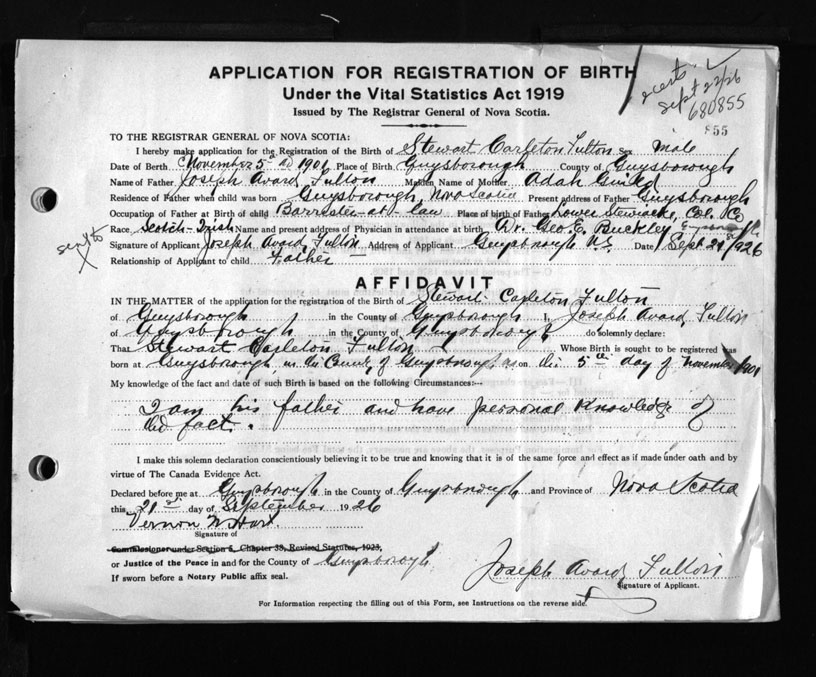 APPLICATION FOR REGISTRATION OF BIRTH
Under the Vital Statistics Act 1919
Issued by The Registrar General of Nova Scotia.
Sept 22/26
680855
855
TO THE REGISTRAR GENERAL OF NOVA SCOTIA:
I hereby make application for the Registration of the Birth of Stewart Carleton Fulton Sex Male
Date of Birth November 5th AD 1901 Place of Birth Guysborough County of Guysborough
Name of Father Joseph Avard Fulton Maiden Name of Mother Adah
Residence of Father when child was born Guysborough, Nova Scotia Present address of Father Guysborough
Occupation of Father at Birth of child Barrister-at-law Place of birth of Father Lower Stewiacke, Col. Co
Race Scotch-Irish Name and present address of Physician in attendance at birth Dr. Geo. E. Buckley
Signature of Applicant Joseph Avard Fulton Address of Applicant Guysborough N.S. Date Sept. 21/1926
Relationship of Applicant to child Father
AFFIDAVIT
IN THE MATTER of the application for the registration of the Birth of Stewart Carleton Fulton
of Guysborough in the County of Guysborough I, Joseph Avard Fulton
of Guysborough in the County of Guysborough do solemnly declare:
That Stewart Carleton Fulton Whose Birth is sought to be registered was
born at Guysborough in the County of Guysborough on the 5th day of November 1901
My knowledge of the fact and date of such Birth is based on the following Circumstances:—
I am his father and have personal knowledge of
the fact.
I make this solemn declaration conscientiously believing it to be true and knowing that it is of the same force and effect as if made under oath and by
virtue of The Canada Evidence Act.
Declared before me at Guysborough in the County of Guysborough and Province of Nova Scotia
this 21st day of September 1926
Vernon
Signature of
Commissioner under Section 5, Chapter 38, Revised Statutes, 1923,
or Justice of the Peace in and for the County of Guysborough
If sworn before a Notary Public affix seal.
Joseph Avard Fulton
Signature of Applicant.
For Information respecting the filling out of this Form, see Instructions on the reverse side.